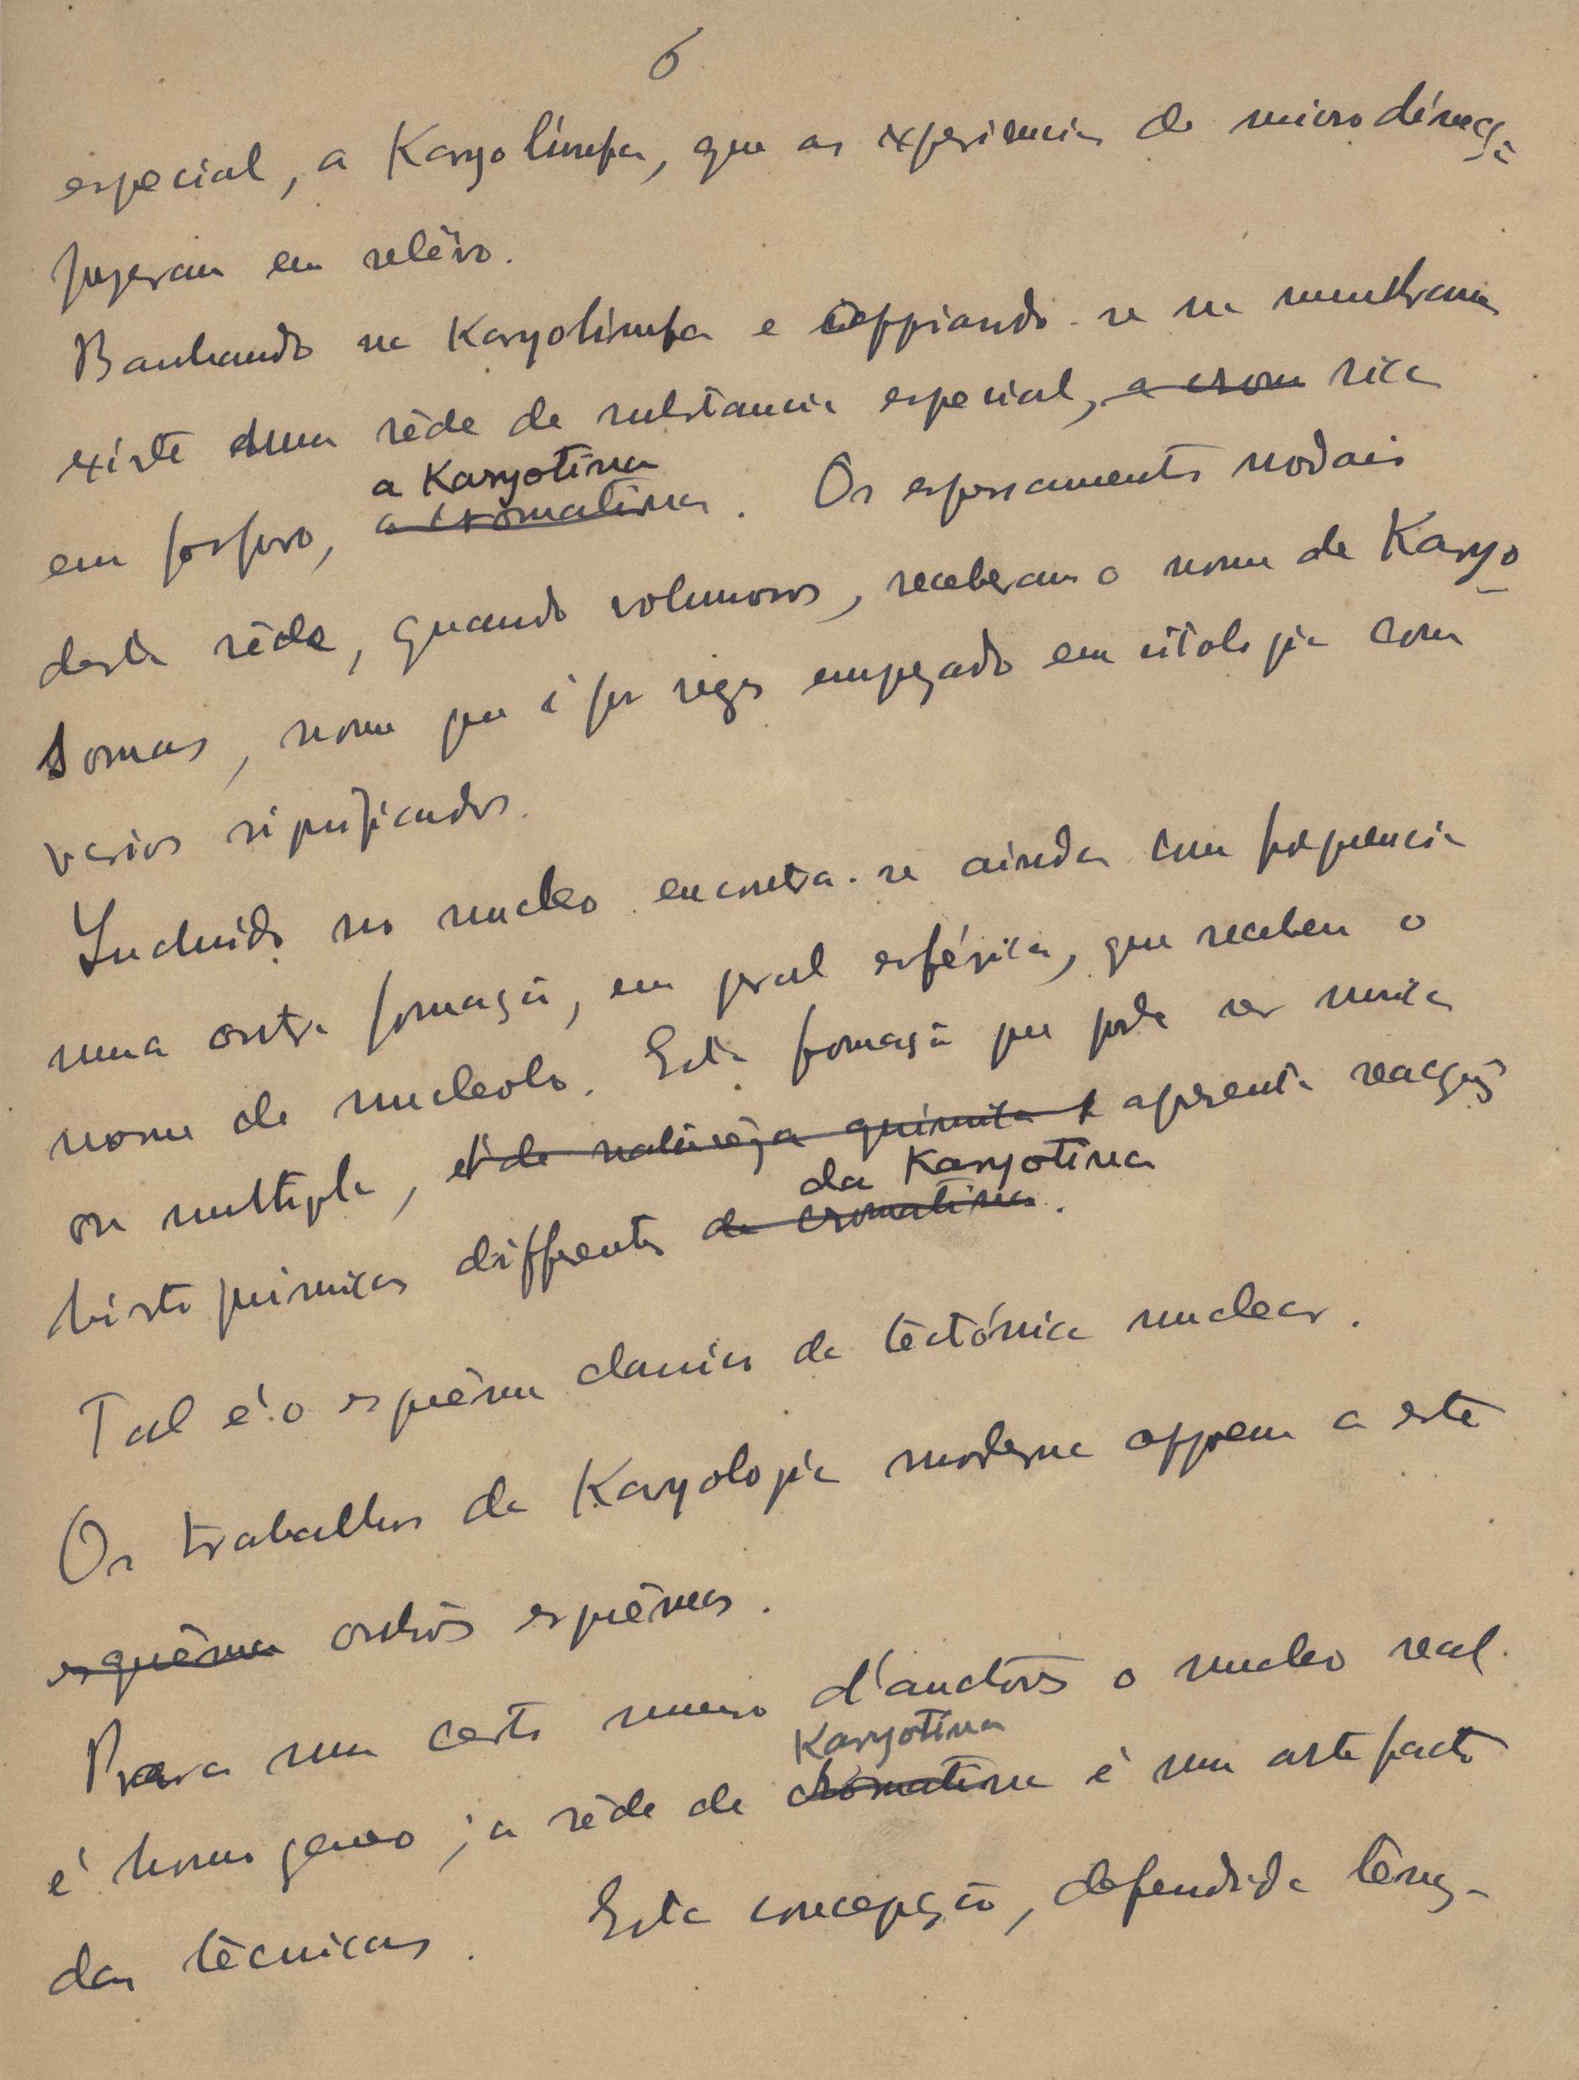 6
especial, a Karyolinfa, que as experiencias de microdissecção
puzeram em relêvo.
Banhando na Karyolinfa e appoiando-se na membrana
existe uma rêde de substancia especial, a crom rica
a Karyotina
em fosforo, a cromatina. Os espessamentos nodais
desta rêde, quando volumosos, receberam o nome de Karyo
somas, nome que é por vezes empregado em citologia com
varios significados.
Incluido no nucleo encontra-se ainda com frequencia
uma outra formação, em geral esférica, que recebeu o
nome de nucleolo. Esta formação que pode ser unica
ou multipla, é de natureza quimica e apresenta reacções
da Karyotina
histoquimicas differentes da cromatina.
Tal é o esquêma classico da tectónica nuclear.
Os trabalhos da Karyologia moderna oppoem a este
esquêma outros esquêmas.
Para um certo numero d'auctores o nucleo real
Karyotina
é homogeneo; a rêde de cromatina é um artefacto
das tècnicas. Esta concepção, defendida